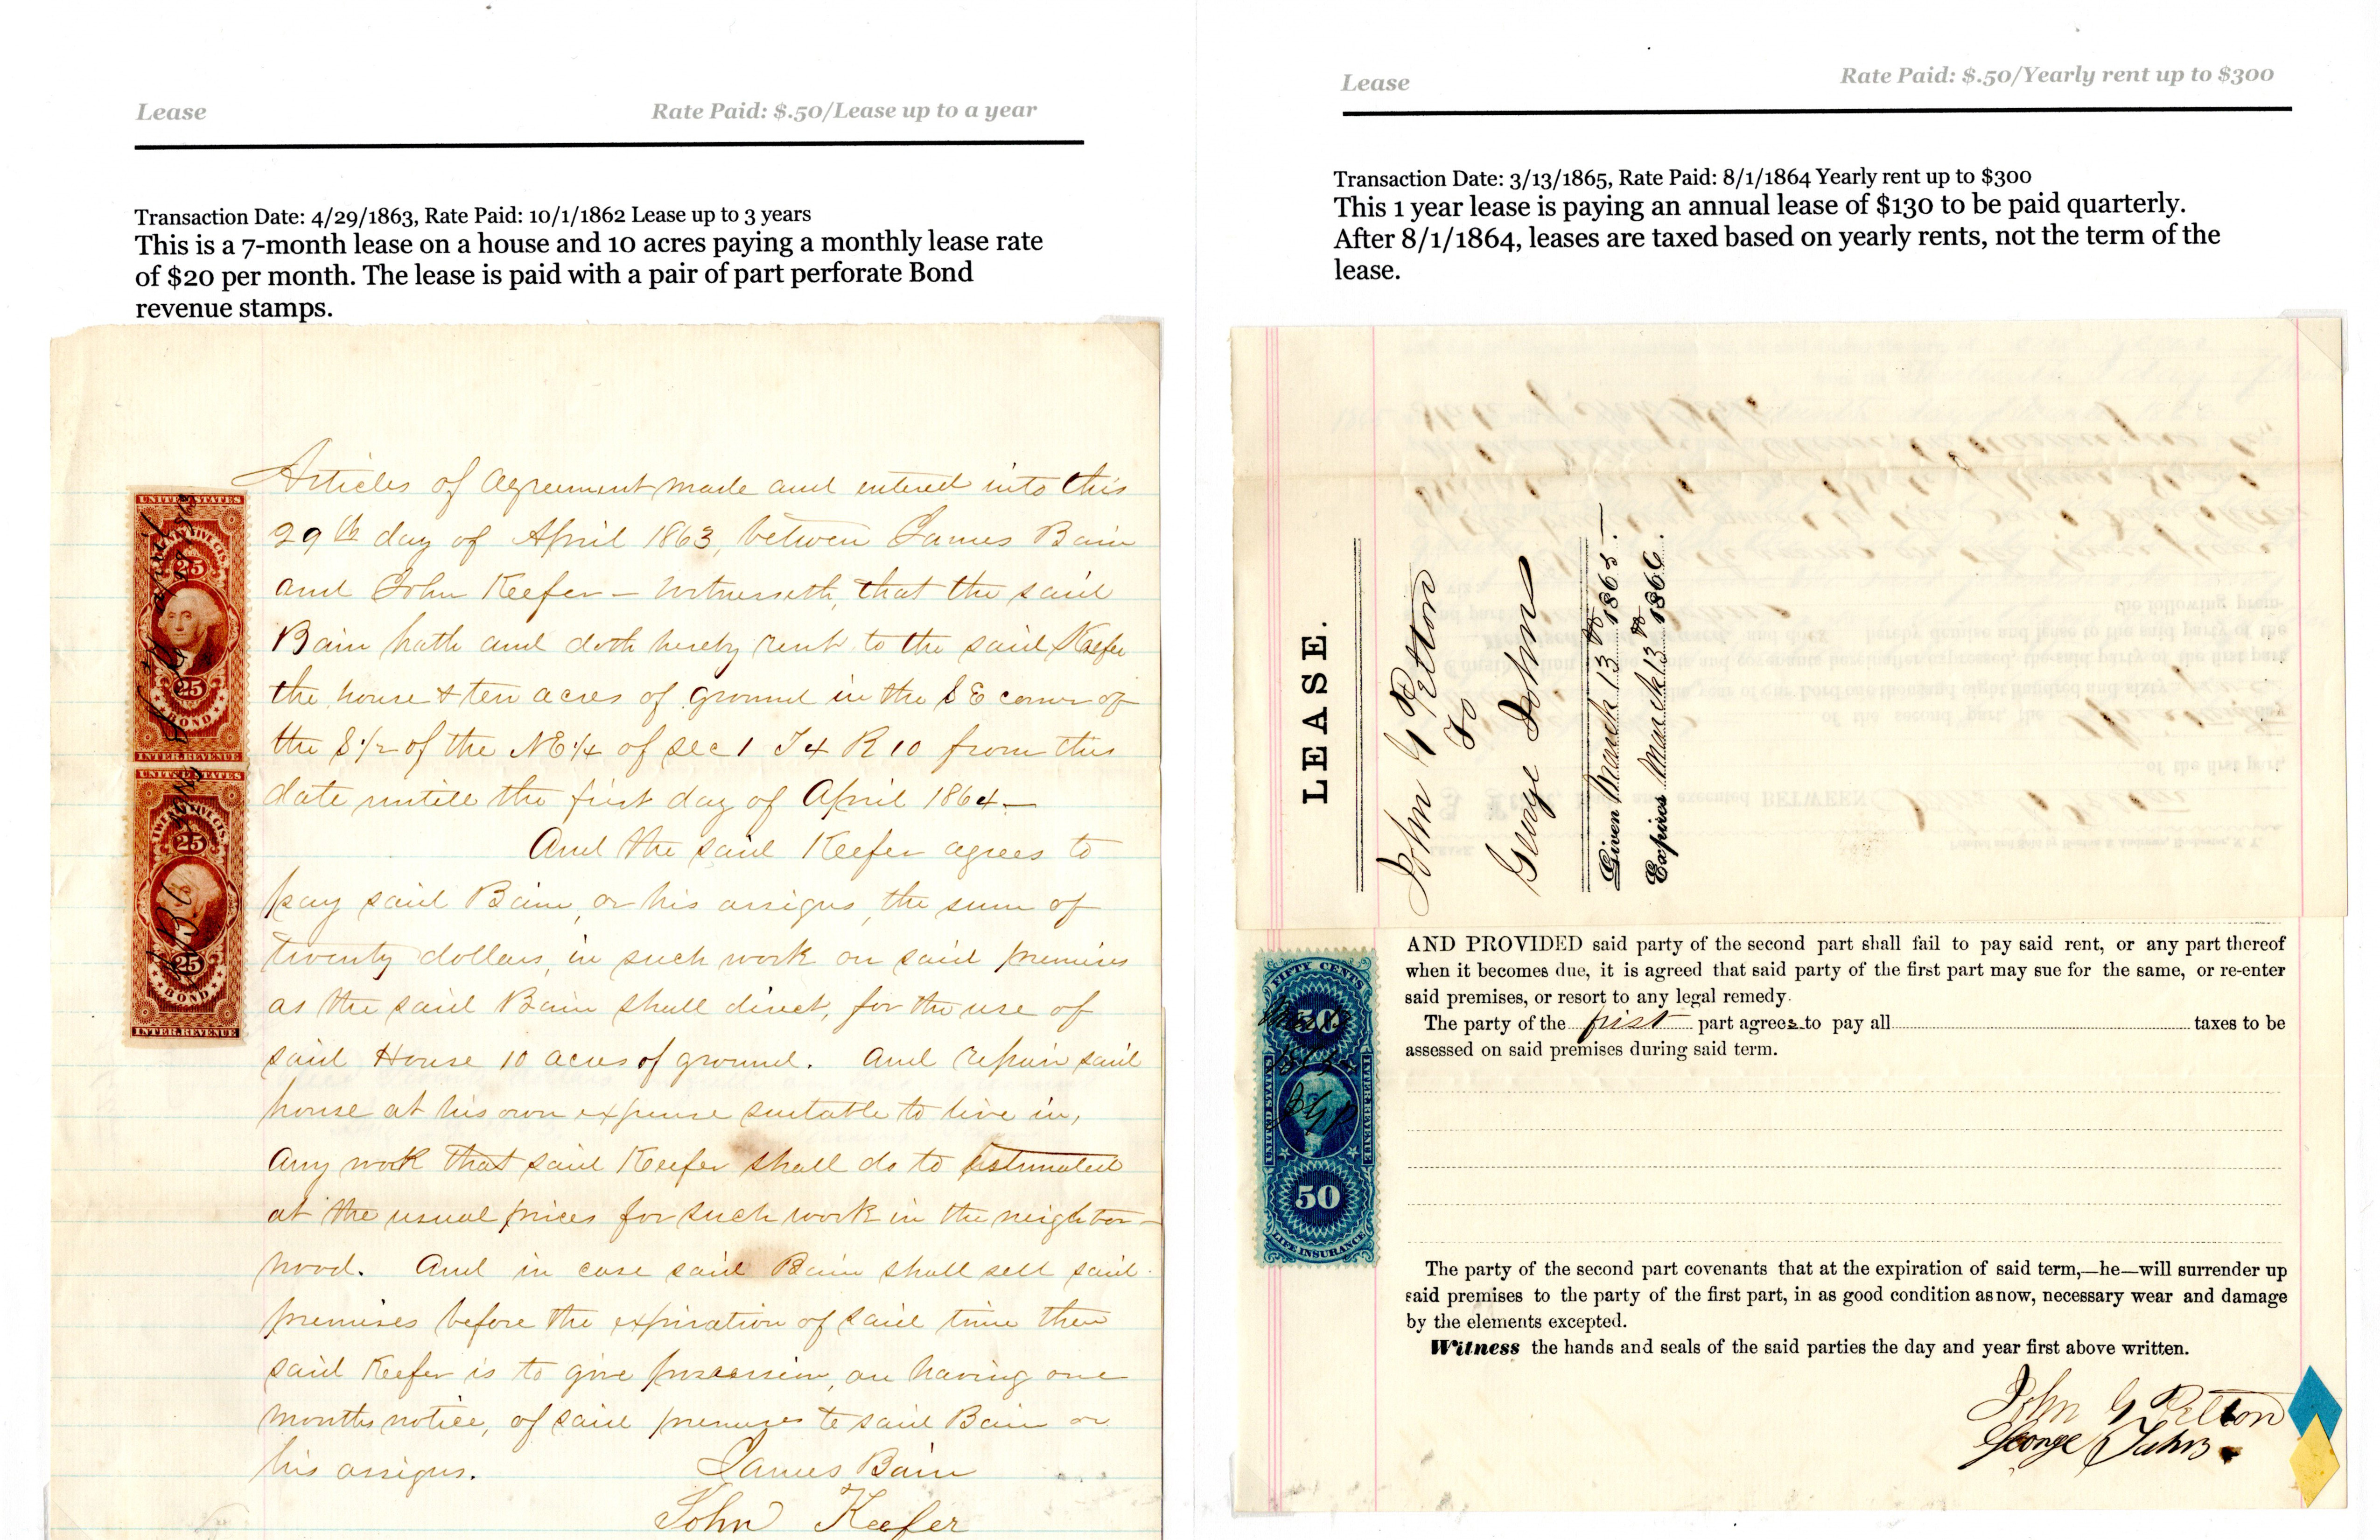 Lease
Rate Paid: $.50/Lease up to a year
Transaction Date: 4/29/1863, Rate Paid: 10/1/1862 Lease up to 3 years
This is a 7-month lease on a house and 10 acres paying a monthly lease rate
of $20 per month. The lease is paid with a pair of part perforate Bond
revenue stamps.
Articles of agreement made and entered into this
29th day of April 1863, betwen James Bain
and John Keefer – witnesseth, that the said
Bain hath and doth hereby rent to the said Keefer
the house & ten acres of ground in the S E corner of
the S 1/2 of the NE 1/4 of sec 1 T4 R 10 from this
date untill the first day of April 1864 –
And the said Keefer agrees to
pay said Bain, or his assigns, the sum of
twenty dollars, in such work on said premises
as the said Bain shall direct, for the use of
said House 10 acres of ground. And repair said
house at his own expense suitable to live in,
Any work that said Keefer shall do to estimated
at the usual prices for such work in the neighbor-
hood. And in case said Bain shall sell said
premises before the expiration of said time then
said Keefer is to give possession, on having one
months notice, of said premises to said Bain or
his assigns.
James Bain
John Keefer
UNITED STATES
TWENTY FIVE CTS.
25
25
BOND
INTER. REVENUE
UNITED STATES
TWENTY FIVE CTS.
25
25
BOND
INTER. REVENUE
Lease
Rate Paid: $.50/Yearly rent up to $300
Transaction Date: 3/13/1865, Rate Paid: 8/1/1864 Yearly rent up to $300
This 1 year lease is paying an annual lease of $130 to be paid quarterly.
After 8/1/1864, leases are taxed based on yearly rents, not the term of the
lease.
LEASE.
John G Pelton
To
George Johns
Given March 13th 1865.
Expires March 13th 1866.
AND PROVIDED said party of the second part shall fail to pay said rent, or any part thereof
when it becomes due, it is agreed that said party of the first part may sue for the same, or re-enter
said premises, or resort to any legal remedy.
The party of the first part agrees to pay all taxes to be
assessed on said premises during said term.
FIFTY CENTS
50
UNITED STATES
INTER. REVENUE
50
LIFE INSURANCE
The party of the second part covenants that at the expiration of said term,—he—will surrender up
said premises to the party of the first part, in as good condition as now, necessary wear and damage
by the elements excepted.
Witness the hands and seals of the said parties the day and year first above written.
John G Pelton
George Johns